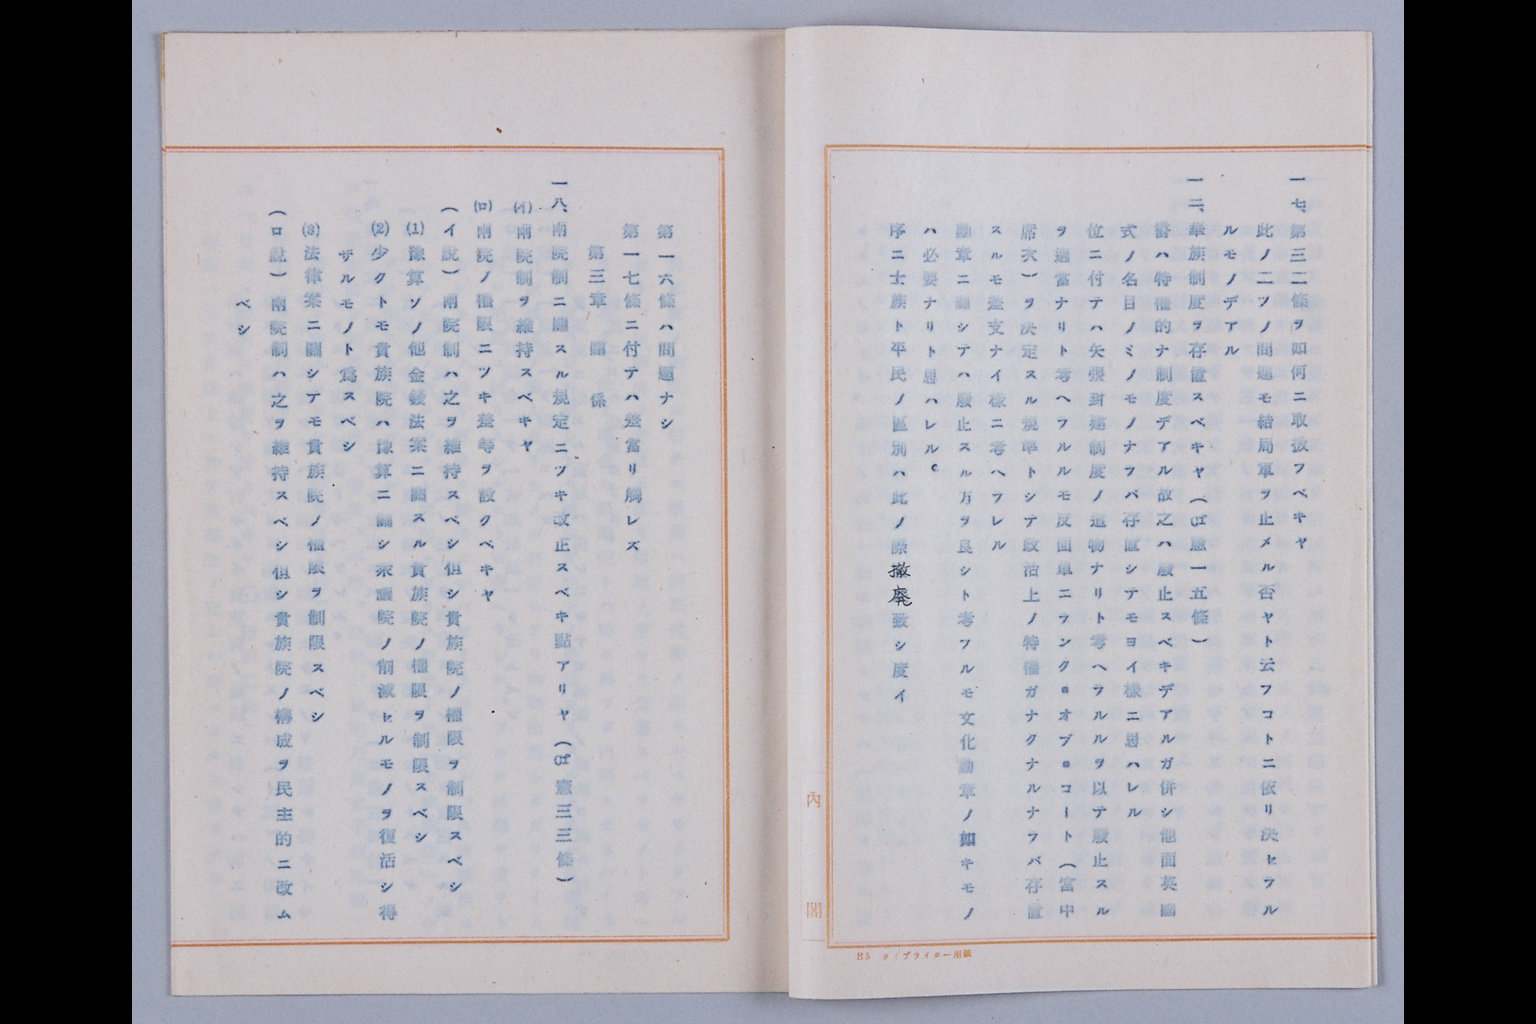 一七、第三二條ヲ如何ニ取扱フベキヤ
此ノ二ツノ問題モ結局軍ヲ止メル否ヤト云フコトニ依リ決セラル
ルモノデアル
一二、華族制度ヲ存置スベキヤ（憲一五條）
爵ハ特權的ナ制度デアル故之ハ廢止スベキデアルガ併シ他面英國
式ノ名目ノミノモノナラバ存置シテモヨイ樣ニ思ハレル
位ニ付テハ矢張封建制度ノ遺物ナリト考ヘラルルヲ以テ廢止スル
ヲ適當ナリト考ヘラルルモ反面單ニランク・オブ・コート（宮中
席次）ヲ決定スル規準トシテ政治上ノ特權ガナクナルナラバ存置
スルモ差支ナイ樣ニ考ヘラレル
勳章ニ關シテハ廢止スル方ヲ良シト考フルモ文化勳章ノ如キモノ
ハ必要ナリト思ハレル。
序ニ士族ト平民ノ區別ハ此ノ際撤廃致シ度イ
内閣
B5 タイプライター用紙
第一六條ハ問題ナシ
第一七條ニ付テハ差當リ觸レズ
第三章 關係
一八、兩院制ニ關スル規定ニツキ改正スベキ點アリヤ（憲三三條）
(イ)兩院制ヲ維持スベキヤ
(ロ)兩院ノ權限ニツキ差等ヲ設クベキヤ
（イ説）兩院制ハ之ヲ維持スベシ但シ貴族院ノ權限ヲ制限スベシ
(1)豫算ソノ他金錢法案ニ關スル貴族院ノ權限ヲ制限スベシ
(2)少クトモ貴族院ハ豫算ニ關シ衆議院ノ削減セルモノヲ復活シ得
ザルモノト爲スベシ
(3)法律案ニ關シテモ貴族院ノ權限ヲ制限スベシ
（ロ説）兩院制ハ之ヲ維持スベシ但シ貴族院ノ構成ヲ民主的ニ改ム
ベシ